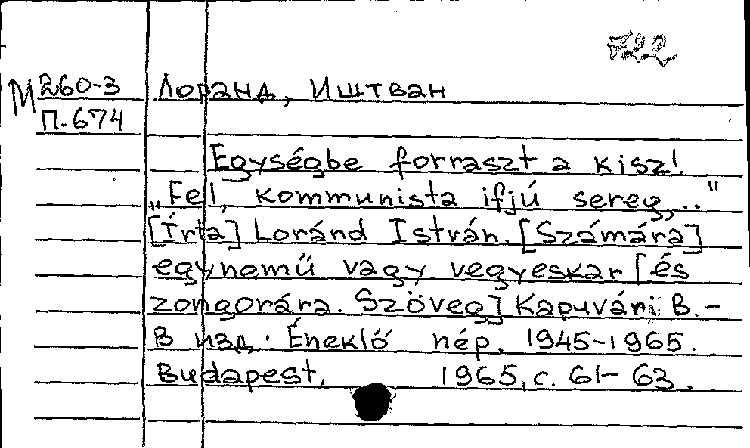 722
М 260-3 Лоранд, Иштван
П-674
Egységbe forraszt a kisz!
"Fel, kommunista ifjú sereg,.."
[Írta] Loránd István. [Számára]
egynemű vagy vegyeskar [és
zongorára. Szöveg] Kapuvári B.-
В изд.: Éneklő nép. 1945-1965.
Budapest, 1965, с. 61-63.